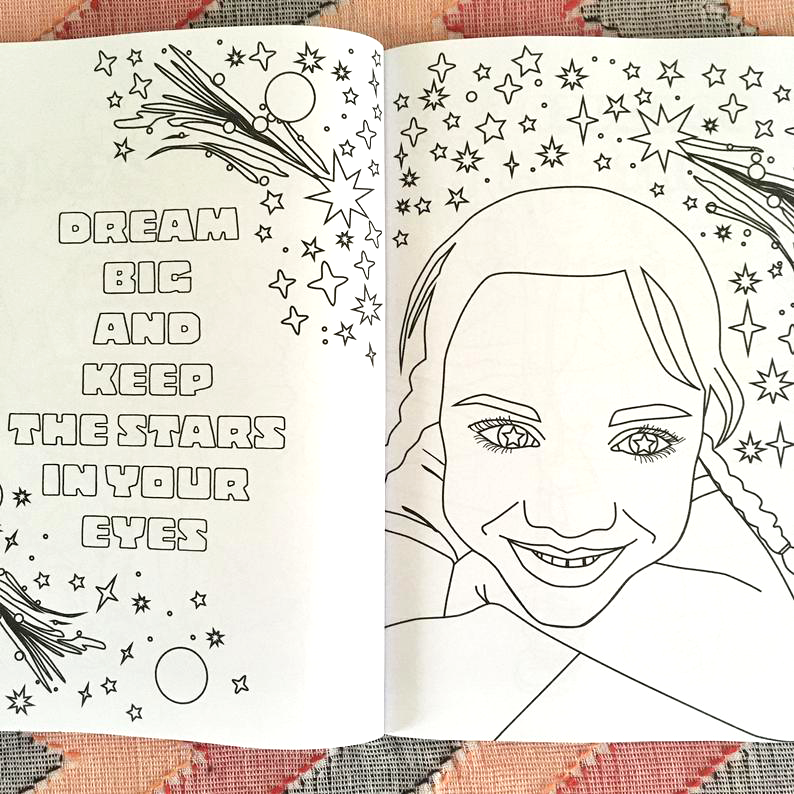 DREAM
BIG
AND
KEEP
THE STARS
IN YOUR
EYES